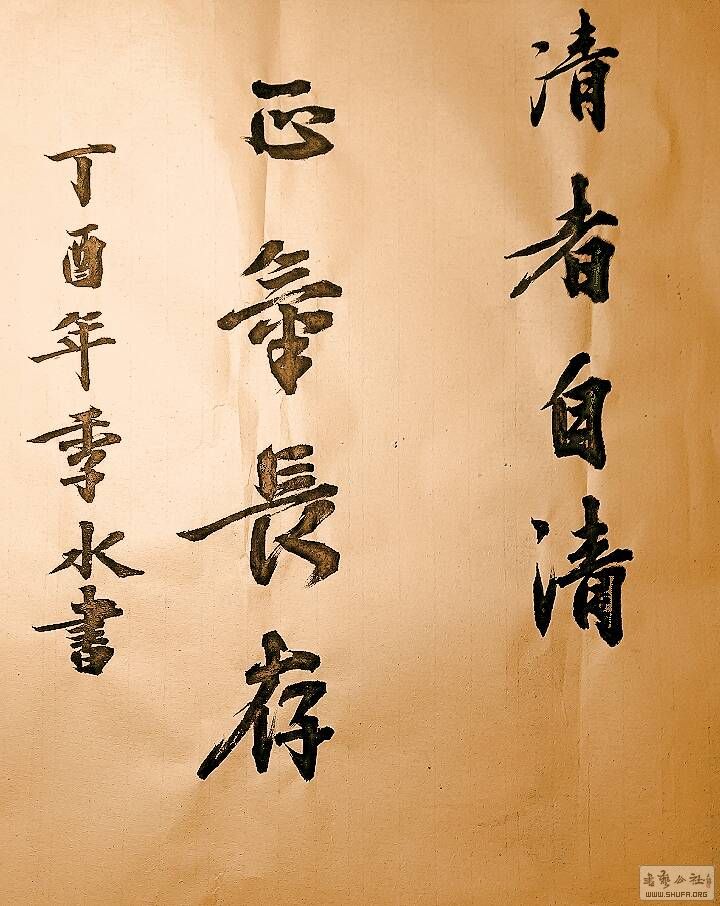 清者自清
正氣長存
丁酉年季水書
WWW.SHUFA.ORG